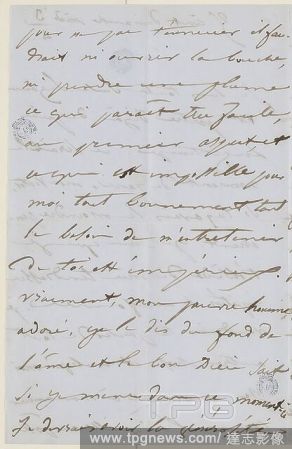 pour ne pas t'ennuyer il fau-
drait ni ouvrir la bouche,
ni prendre une plume
ce qui paraît très facile,
au premier aspect et
ce qui est impossible pour
moi tout bonnement tant
le besoin de m'entretenir
de toi est impérieux.
vraiment, mon pauvre homme
adoré, je le dis du fond de
l'âme et le bon Dieu sait
si je mens dans ce moment-ci
Je devrais avoir la
TPG
www.tpgnews.com / 達志影像